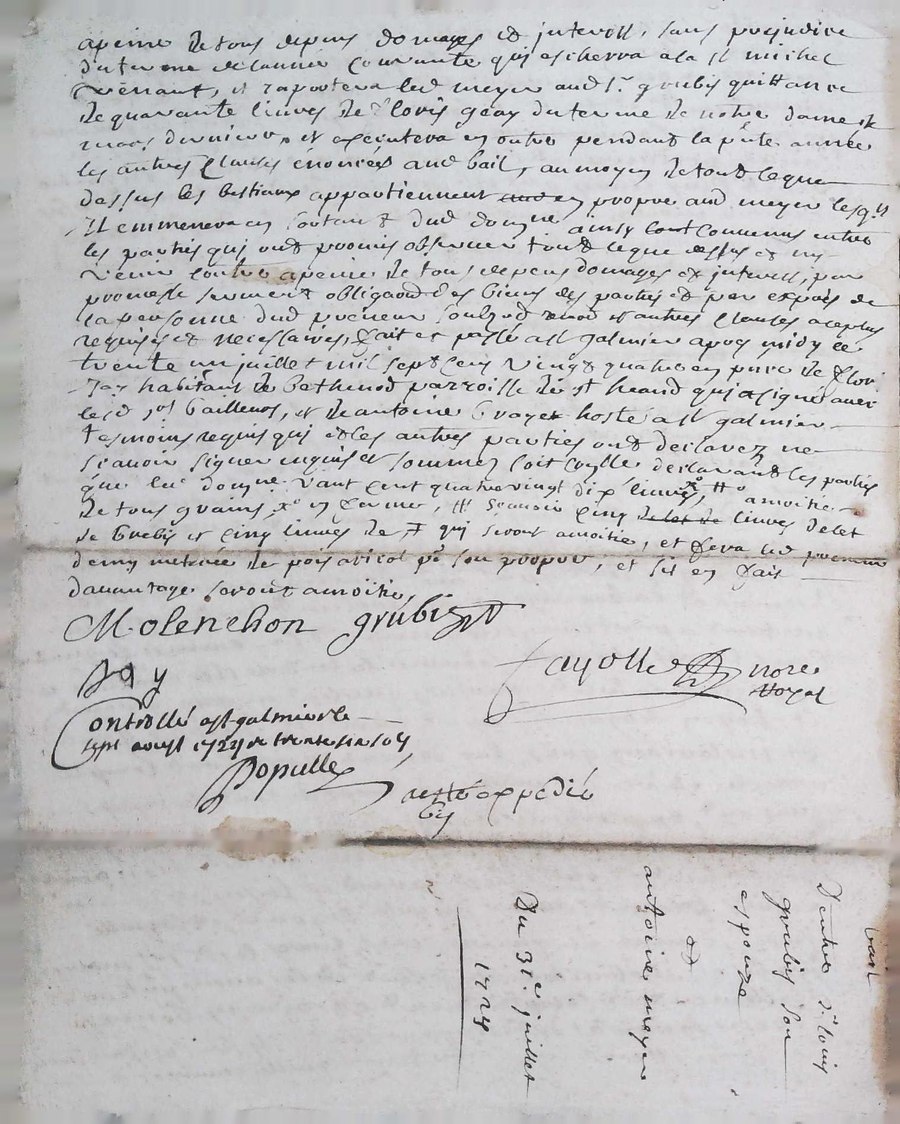 apeine de tous depens domages et interest, sans prejudice
du terme de lannée courante qui escherra a la st michel
venant, et raportera led meyer aud sr grubis quittance
de quarante livres de sr loris geay du terme de notre dame de
mars dernier, et executera en outre pendant la pnte année
les autres clauses enoncées aud bail, aumoyen de tout ceque
dessus les bestiaux appartiennent en propre aud meyer lesqls
il emmenera en sortant dud domyne ainsy sont convenus entre
les parties qui ont promis observer tout ceque dessus et ny
venir contre apeine de tous depens domages et interest, par
promesse serment obligaon des biens des parties et par exprès de
la personne dud preneur et autres clauses
requises et necessaires, fait et passé a st galmier apres midy le
trente un juillet mil sept cens vingt quatre en pnce de
Jay habitant de Bathenod parroisse de st heand qui a signé avec
lesd srs bailleurs, et de antoine hoste a st galmier
tesmoins requis qui et les autres parties ont declarez ne
scavoir signer enquis et sommez soit declarant les parties
que led domyne vaut cent quatre vingt dix livres, amoitié
de tous grains, et en ferme, scavoir cinq livres delet
de brebis et cinq livres de qui seront amoitié, et fera led preneur
demy metterée de pois aricot pr son propre, et sil en fait
davantage seront amoitié,
Molenchon grubis
Jay
fayolle nore
Royal
Controllé a st galmier le
sept aoust 1724
Populle
expedié
bail
Dentre sr louis
grubis son
espouze
et
antoine meyer
Du 31e juillet
1724